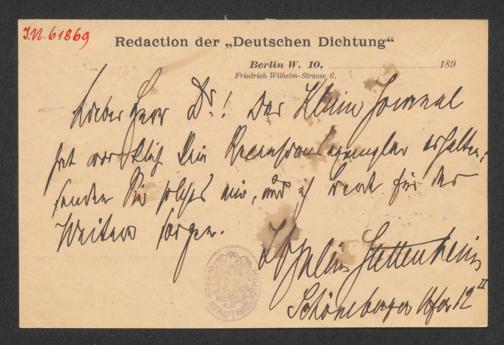 I.N. 61869
Redaction der „Deutschen Dichtung“
Berlin W. 10, 189
Friedrich Wilhelm-Strasse 6.
Lieber Herr Dr.! Das Kleine Journal
hat kein Recensionsexemplar erhalten,
senden Sie solches mir, und ich werde für das
Weitere sorgen.
Julius Stettenheim
Schöneberger Ufer 12 II